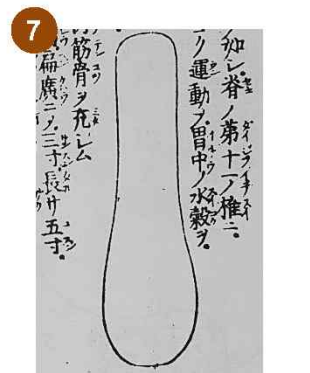 7
如シ。脊ノ第十一ノ椎ニ。
ノ運動ヲ。胃中ノ水穀ヲ。
筋骨ヲ充シム
扁廣ニ〆。三寸長サ五寸。